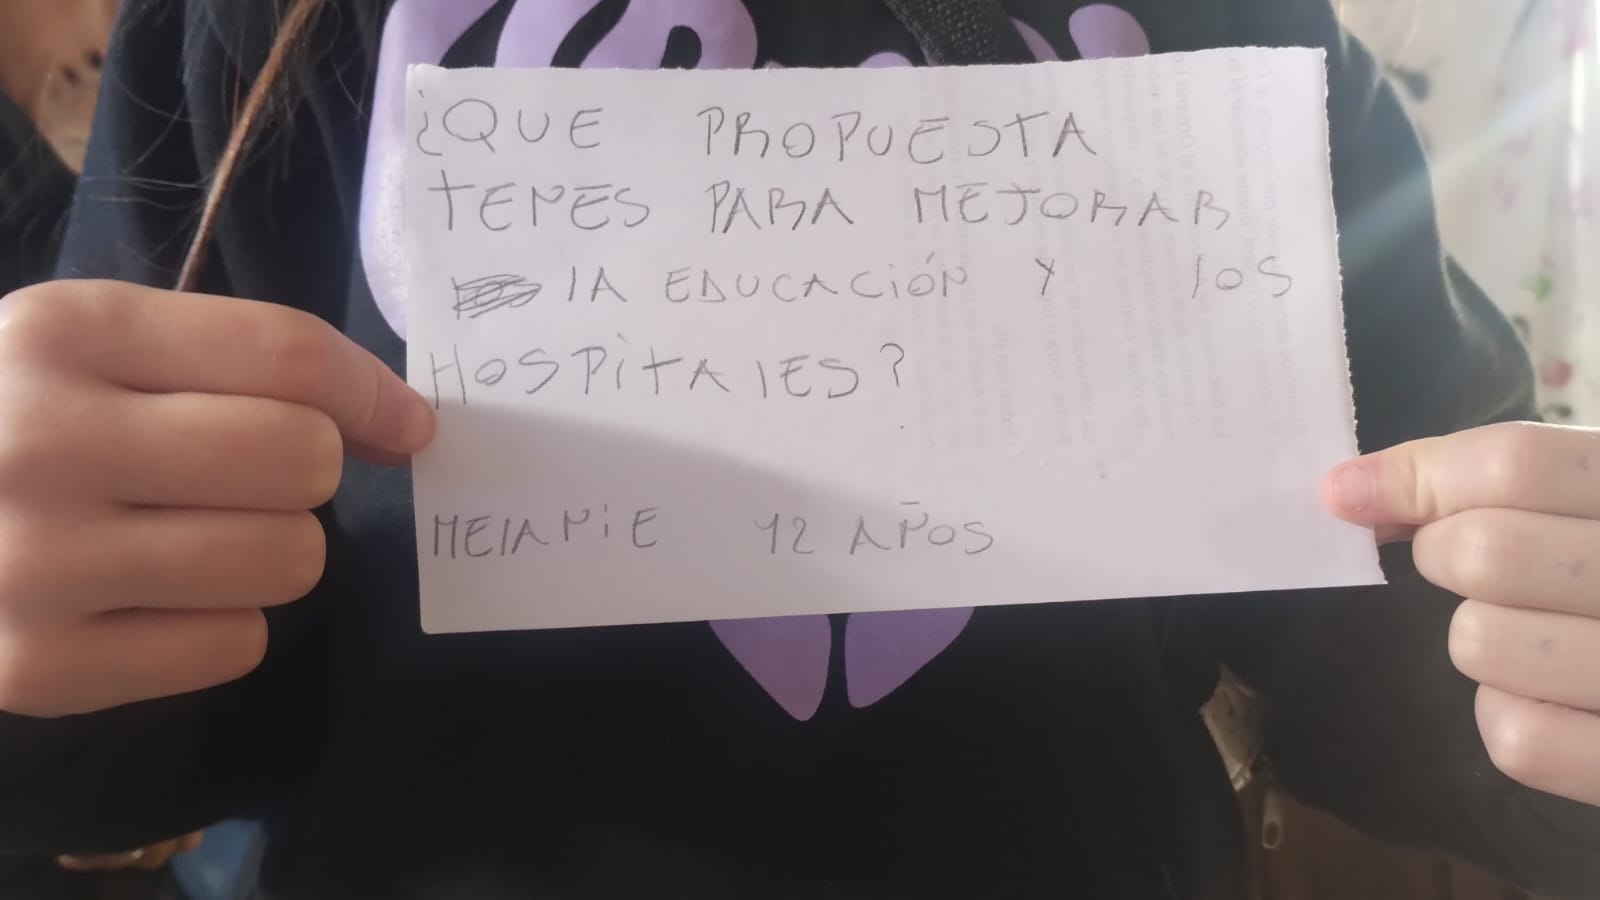 ¿QUE PROPUESTA
TENES PARA MEJORAR
lA EDUCACiÓN Y lOS
HOSPiTAlES?
MElANiE 12 AÑOS